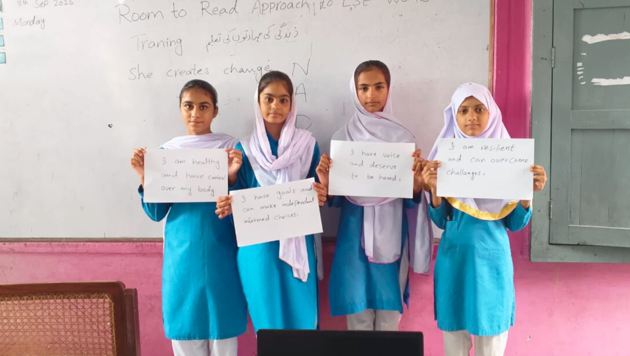 Sep 2025
Monday
Room to Read Approach, to LSE
Traning زندگی کی مہارتوں کی تعلیم
She creates change N
A
I am healthy
and have control
over my body
I have goals and
can make independent
informed choices.
I have voice
and deserve
to be heard.
I am resilient
and can overcome
challages.